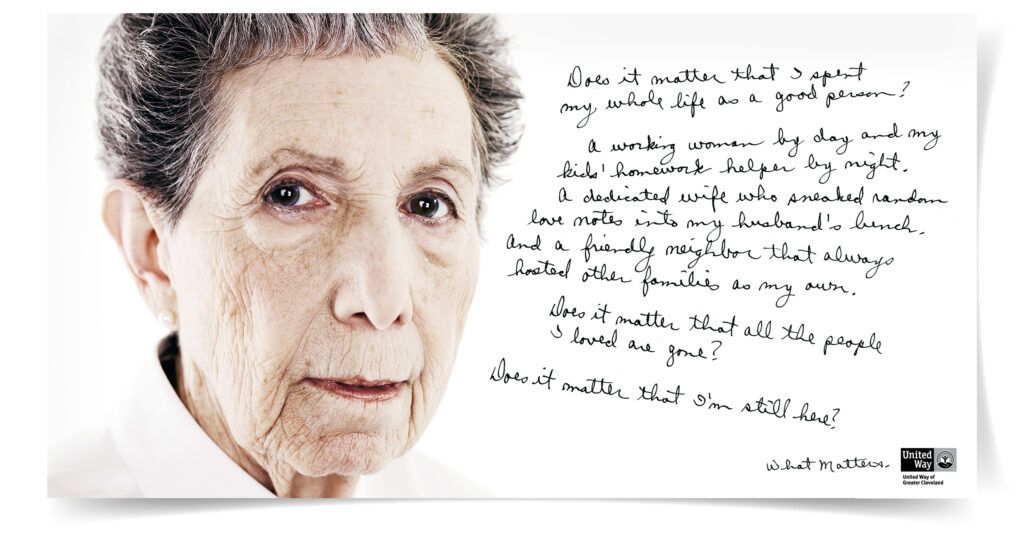 Does it matter that I spent
my whole life as a good person?
A working woman by day and my
kids' homework helper by night.
A dedicated wife who sneaked random
love notes into my husband's lunch.
And a friendly neighbor that always
hosted other families as my own.
Does it matter that all the people
I loved are gone?
Does it matter that I'm still here?
What Matters.
United
Way
United Way of
Greater Cleveland